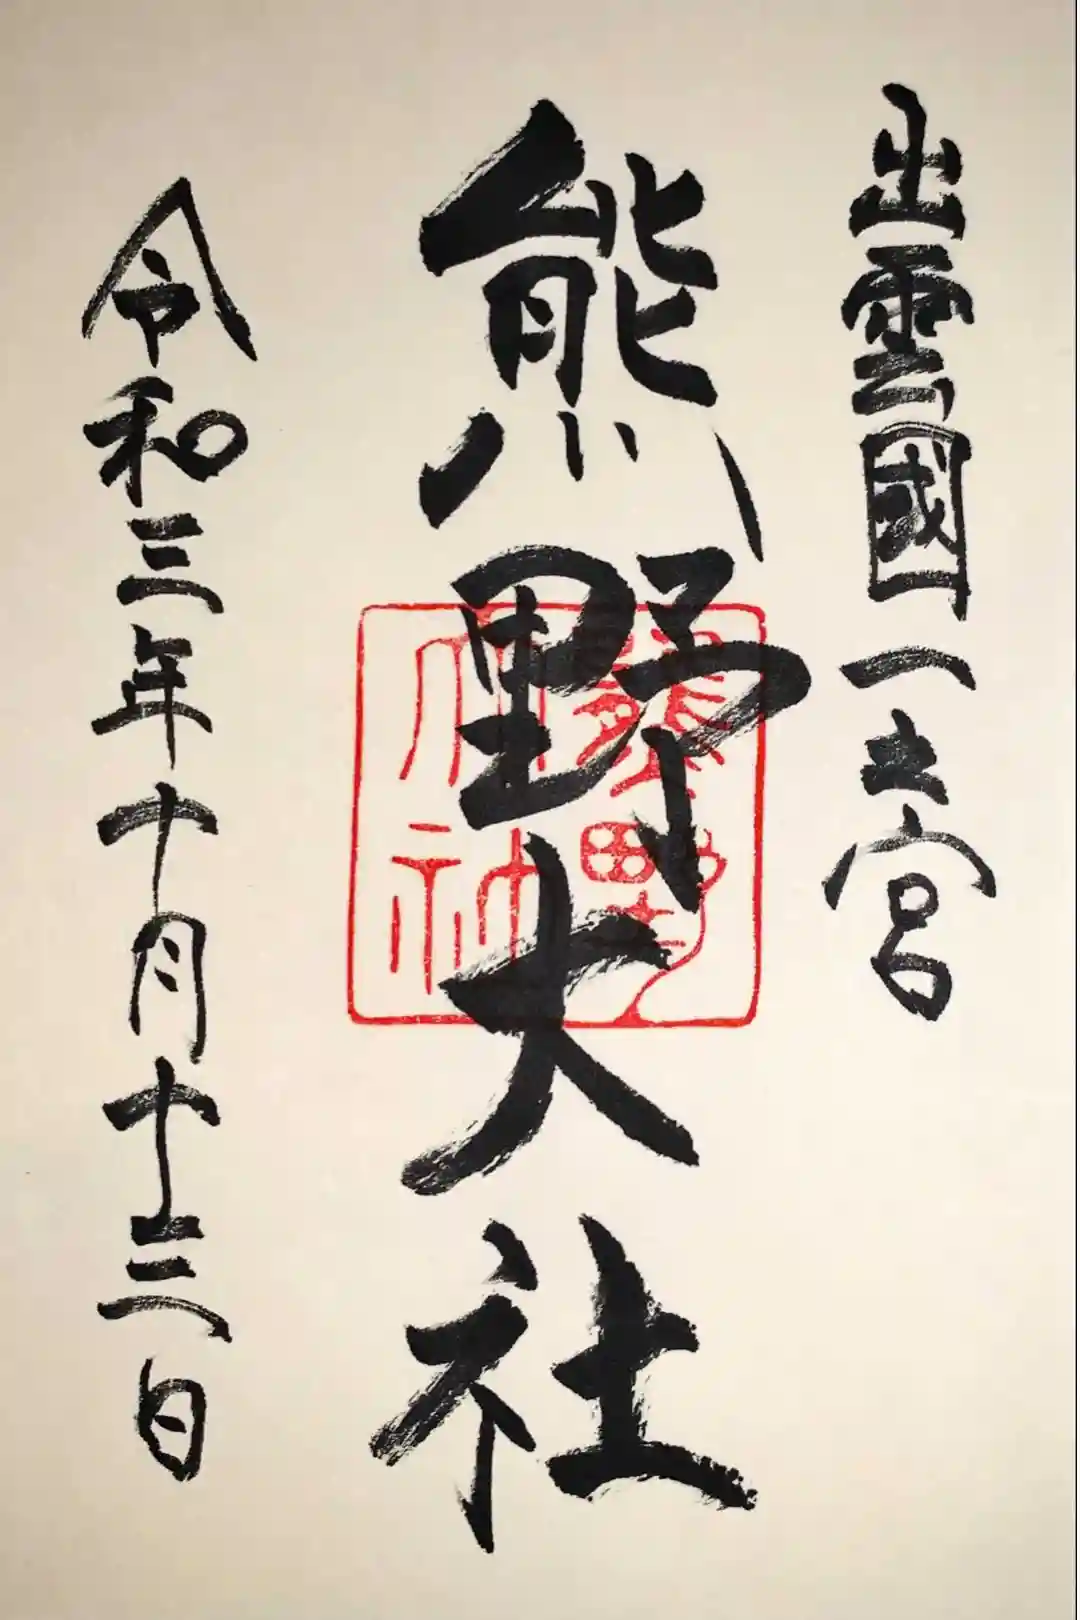 出雲國一之宮
熊野大社
熊野
大社
令和三年十月十三日